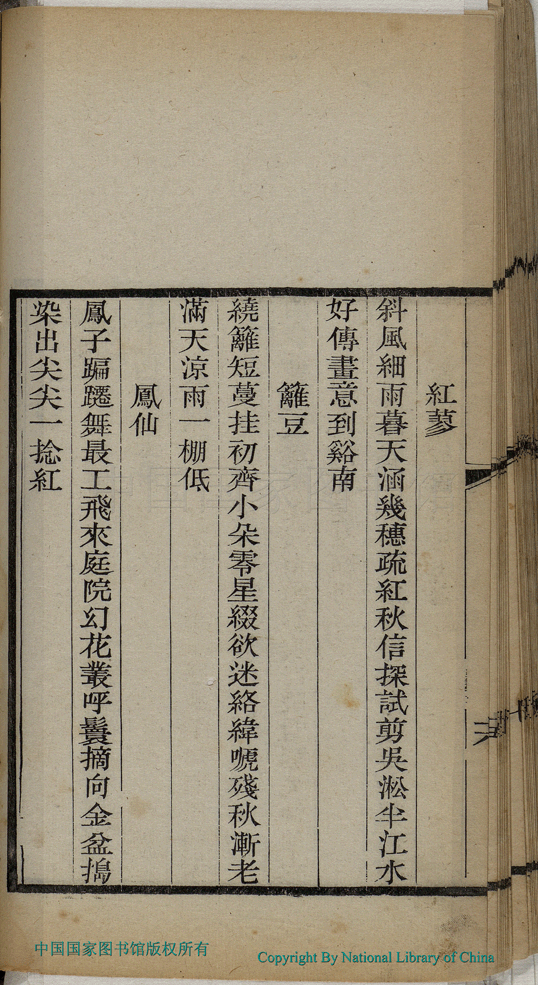 紅蓼
斜風細雨暮天涵幾穗疏紅秋信探試剪吳淞半江水
好傳畫意到谿南
籬豆
繞籬短蔓挂初齊小朵零星綴欲迷絡緯嗁殘秋漸老
滿天涼雨一棚低
鳳仙
鳳子蹁躚舞最工飛來庭院幻花叢呼鬟摘向金盆搗
染出尖尖一捻紅
中国国家图书馆版权所有
Copyright By National Library of China